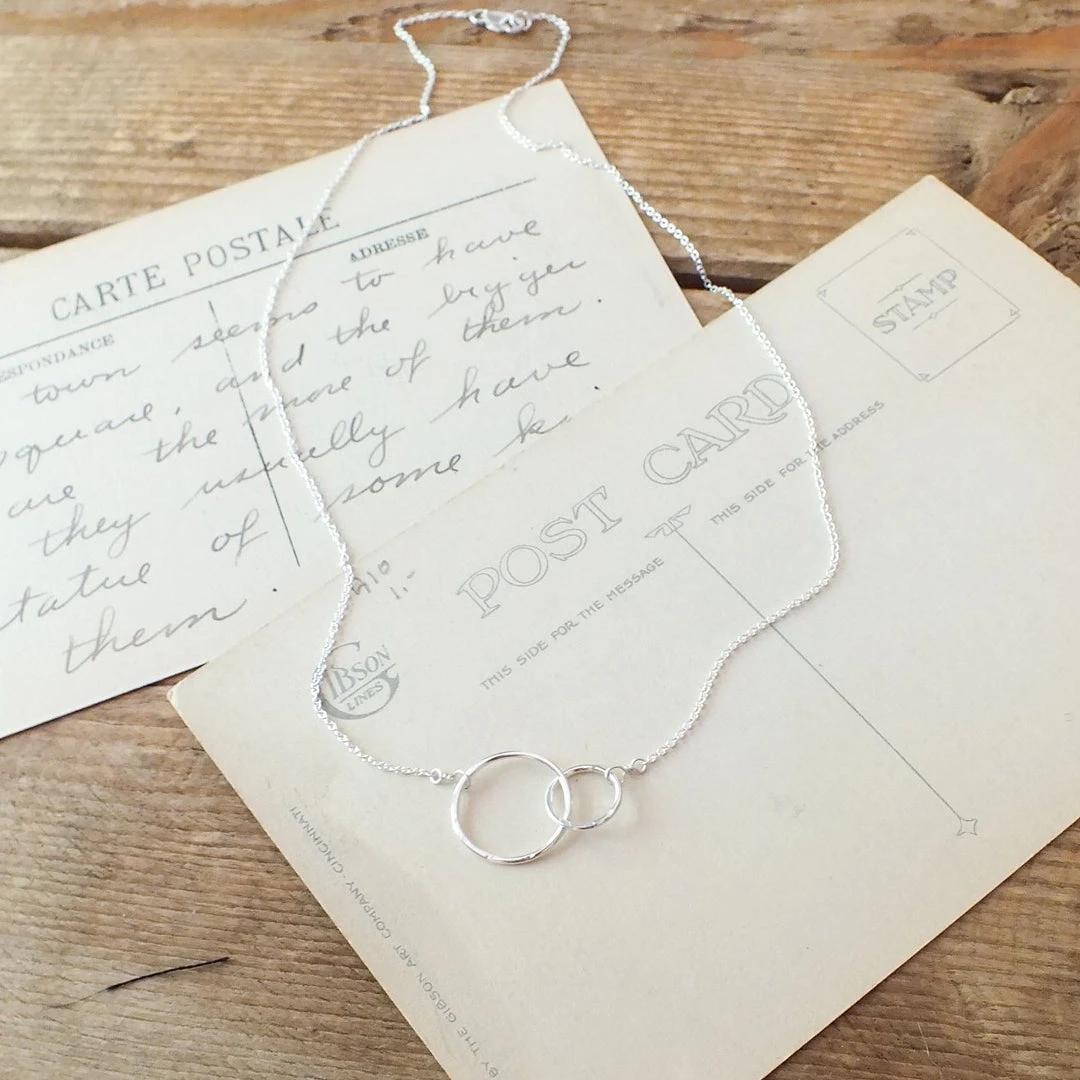 CARTE POSTALE
ADRESSE
town seems to have
square, and the bigger
are the more of them.
they usually have
statue of some
them.
STAMP
POST CARD
THIS SIDE FOR THE MESSAGE
THIS SIDE FOR THE ADDRESS
GIBSON
LINES
BY THE GIBSON ART COMPANY - CINCINNATI